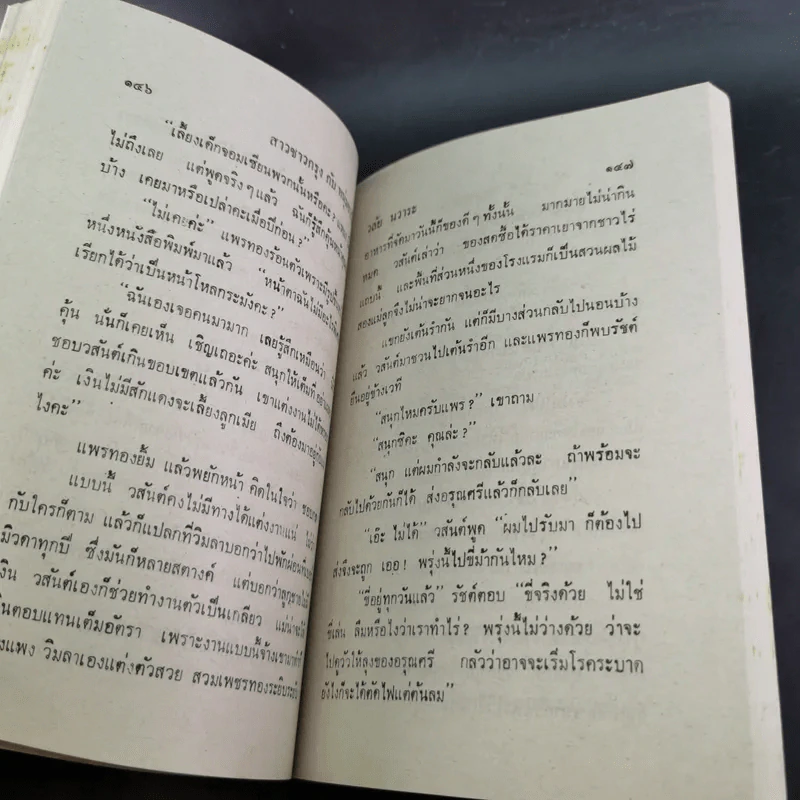 ๑๔๖
สาวชาวกรุง กับ
“เลี้ยงเด็กจอมเซียนพวกนั้นหรือคะ?
ไม่ถึงเลย แต่พูดจริงๆแล้ว ฉันรู้สึกคุ้นหน้า
บ้าง เคยมาหรือเปล่าคะเมื่อปีก่อน?”
“ไม่เคยค่ะ” แพรทองร้อนตัวเพราะมีรูป
หนึ่งหนังสือพิมพ์มาแล้ว “หน้าตาฉันไม่มีอะไร
เรียกได้ว่าเป็นหน้าโหลกระมังคะ?”
“ฉันเองเจอคนมามาก เลยรู้สึกเหมือนว่า
คุ้น นั่นก็เคยเห็น เชิญเถอะค่ะ สนุกให้เต็มที่
ชอบวสันต์เกินขอบเขตแล้วกัน เขาแต่งงานไม่ได้
ค่ะ เงินไม่มีสักแดงจะเลี้ยงลูกเมีย ถึงต้องมาอยู่
ไงคะ”
แพรทองยิ้ม แล้วพยักหน้า คิดในใจว่า
แบบนี้ วสันต์คงไม่มีทางได้แต่งงานแน่
กับใครก็ตาม แล้วก็แปลกที่วิมลาบอกว่าไปพักผ่อน
มิวดาทุกปี ซึ่งมันก็หลายสตางค์ แต่บอกว่าลูกชาย
งิน วสันต์เองก็ช่วยทำงานตัวเป็นเกลียว แม่น่าจะ
นตอบแทนเต็มอัตรา เพราะงานแบบนี้จ้างเขามา
งแพง วิมลาเองแต่งตัวสวย สวมเพชรทองระยิบระยับ
วลัย นวาระ
๑๔๗
อาหารที่จัดมาวันนี้ก็ของดีๆทั้งนั้น มากมายไม่น่ากิน
หมด วสันต์เล่าว่า ของสดซื้อได้ราคาเยาจากชาวไร่
แถบนี้ และพื้นที่ส่วนหนึ่งของโรงแรมก็เป็นสวนผลไม้
สองแม่ลูกจึงไม่น่าจะยากจนอะไร
แขกยังเต้นรำกัน แต่ก็มีบางส่วนกลับไปนอนบ้าง
แล้ว วสันต์มาชวนไปเต้นรำอีก และแพรทองก็พบรัชต์
ยืนอยู่ข้างเวที
“สนุกไหมครับแพร?” เขาถาม
“สนุกซิคะ คุณล่ะ?”
“สนุก แต่ผมกำลังจะกลับแล้วละ ถ้าพร้อมจะ
กลับไปด้วยกันก็ได้ ส่งอรุณศรีแล้วก็กลับเลย”
“เอ๊ะ ไม่ได้” วสันต์พูด “ผมไปรับมา ก็ต้องไป
ส่งจึงจะถูก เออ! พรุ่งนี้ไปขี่ม้ากันไหม?”
“ขี่อยู่ทุกวันแล้ว” รัชต์ตอบ “ขี่จริงด้วย ไม่ใช่
ขี่เล่น ลืมหรือไงว่าเราทำไร่? พรุ่งนี้ไม่ว่างด้วย ว่าจะ
ไปดูวัวให้ลุงของอรุณศรี กลัวว่าอาจจะเริ่มโรคระบาด
ยังไงก็จะได้ตัดไฟแต่ต้นลม”